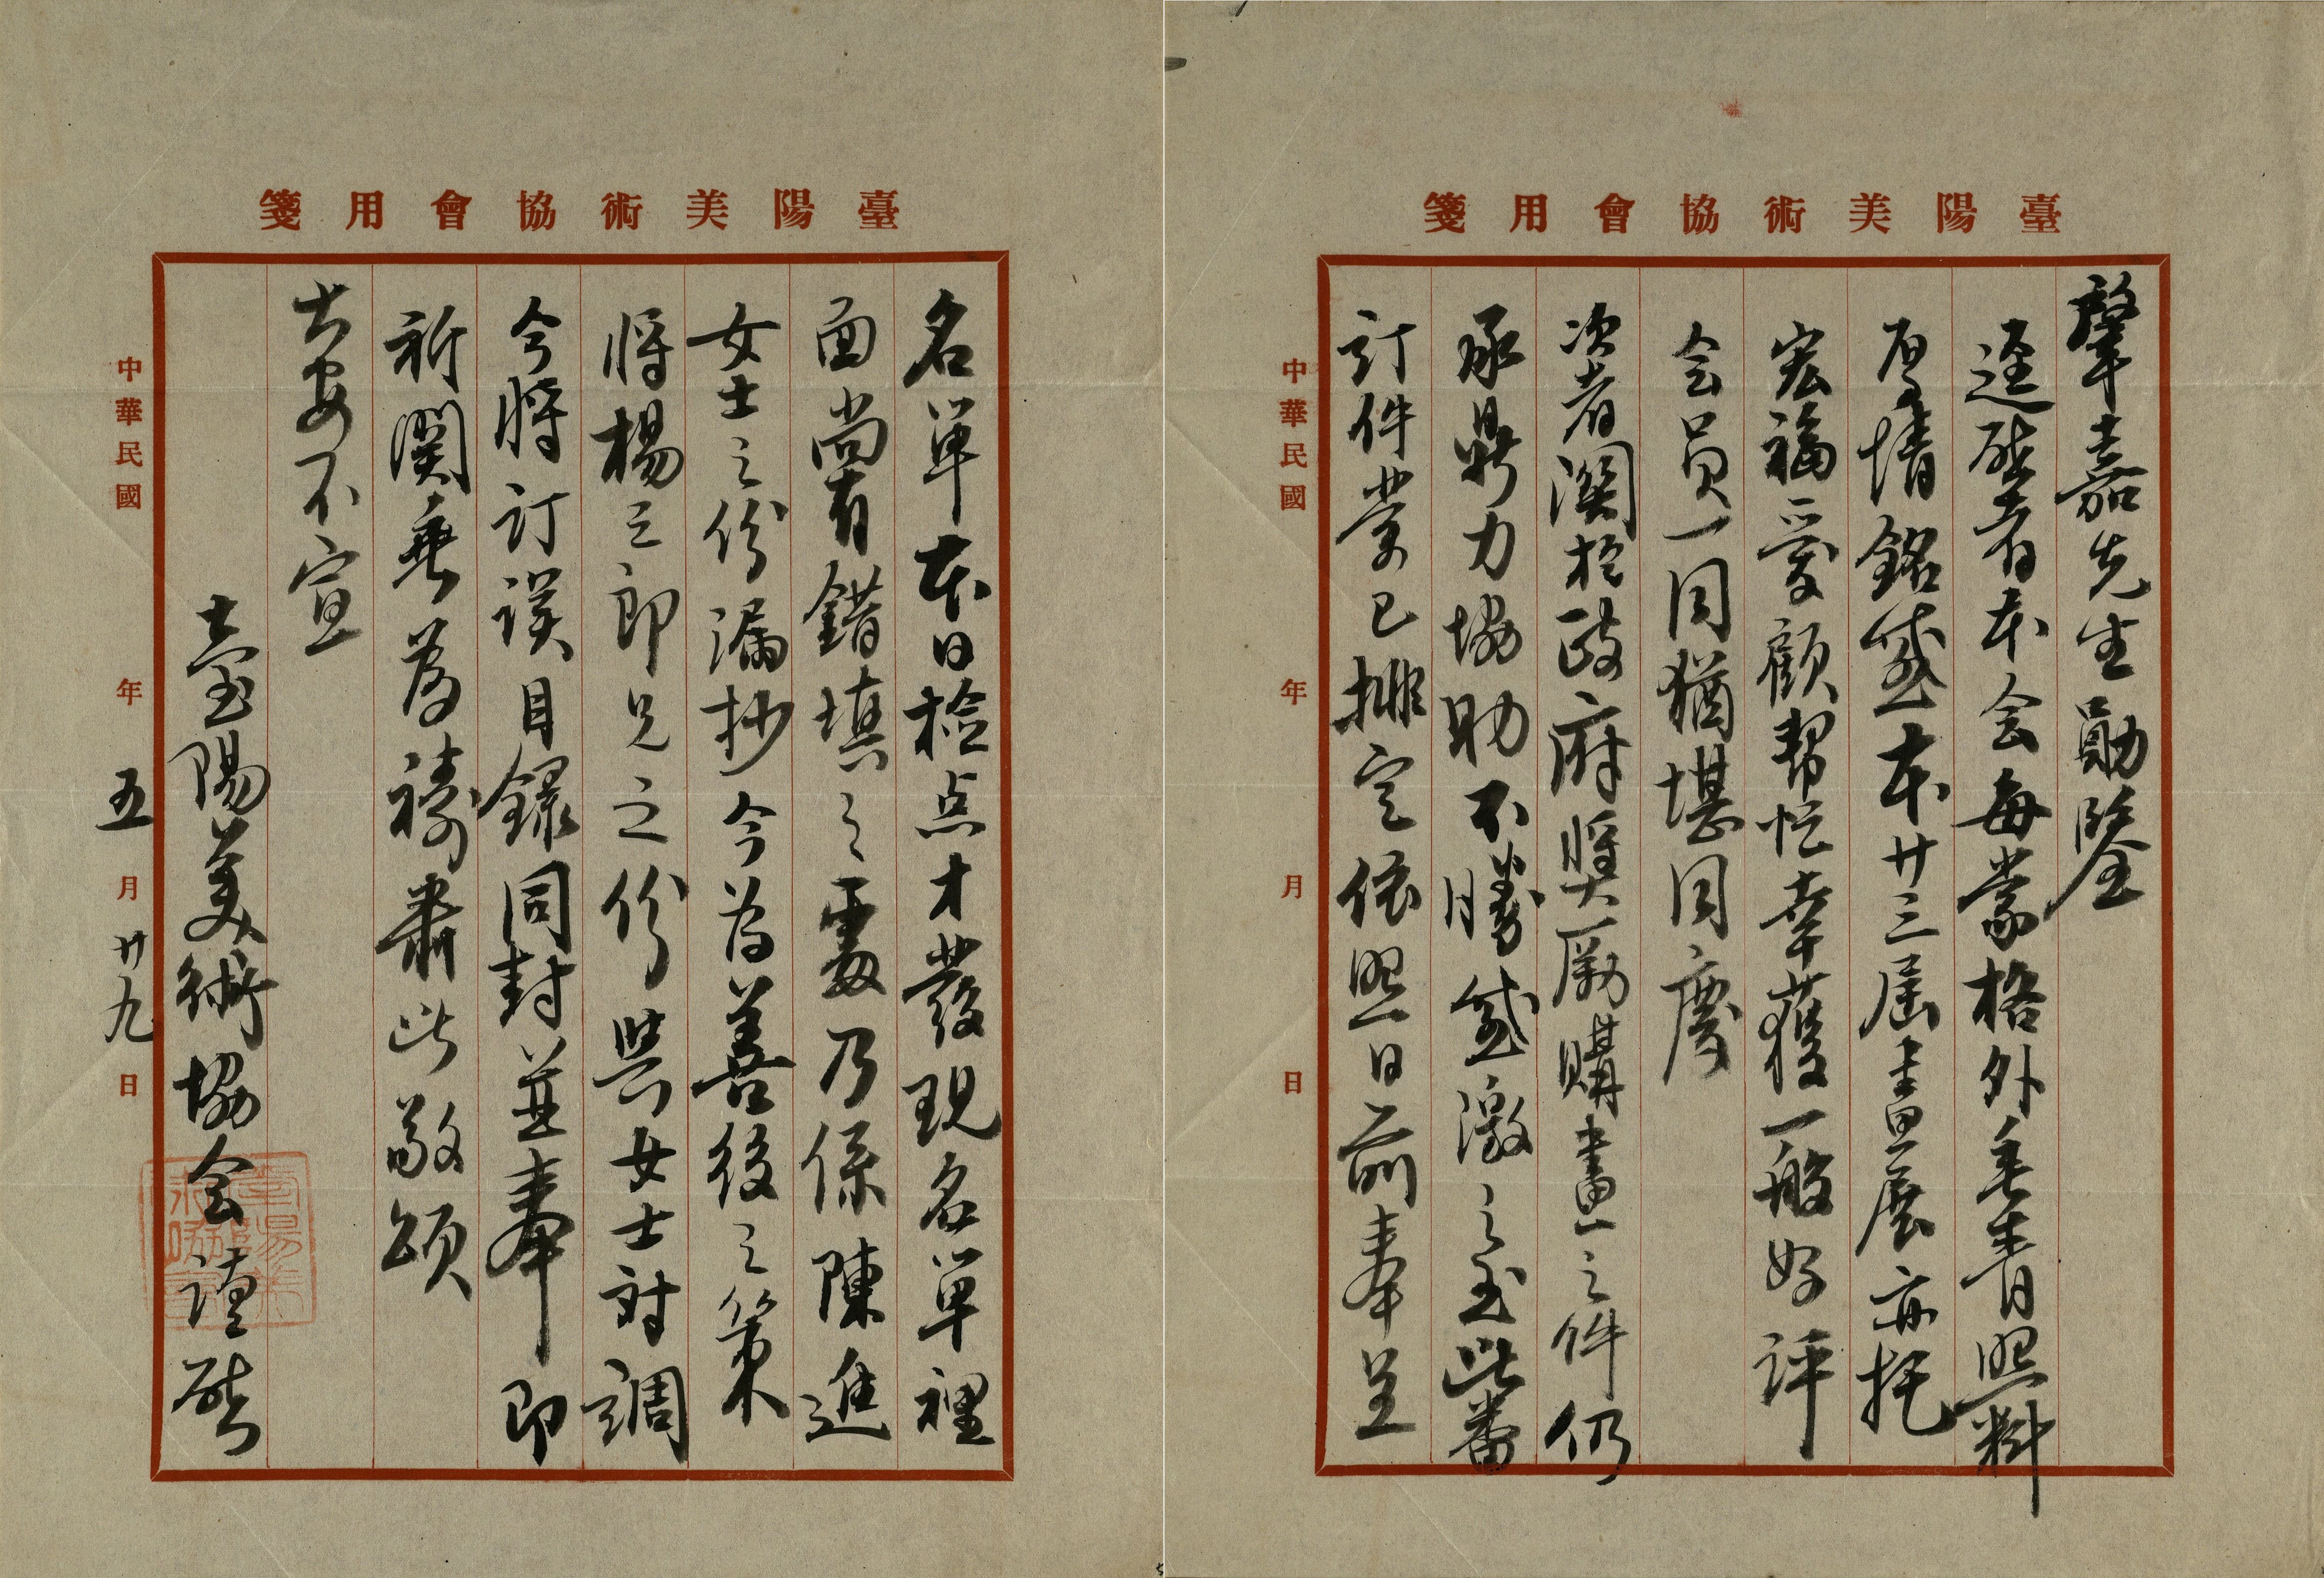 臺陽美術協會用箋
肇嘉先生勛鑒
逕啓者本会每蒙格外垂青照料
厚情銘感本廿三屆畫展亦托
宏福愛顧幫忙幸獲一般好評
会員一同猶堪同慶
次者關於政府獎勵購畫之件仍
承鼎力協助不勝感激之至此番
訂件業已排定依照日前奉呈
中華民國 年 月 日
臺陽美術協會用箋
名单本日檢点才發現名单裡
面尚有錯填之處乃係陳進
女士之份漏抄今為善後之策
將楊三郎兄之份與女士対調
今將訂誤目錄同封並奉即
祈関垂為禱肅此敬頌
大安不宣
臺陽美術協会謹啓
中華民國 年 五 月 廿九 日